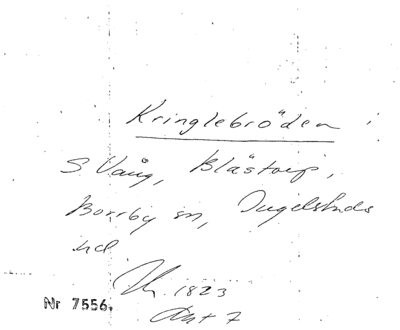 Kringlebröden
S Vång, Blästorp,
Borrby sn, Ingelstads
hd
1823
Akt 7
Nr 7556.